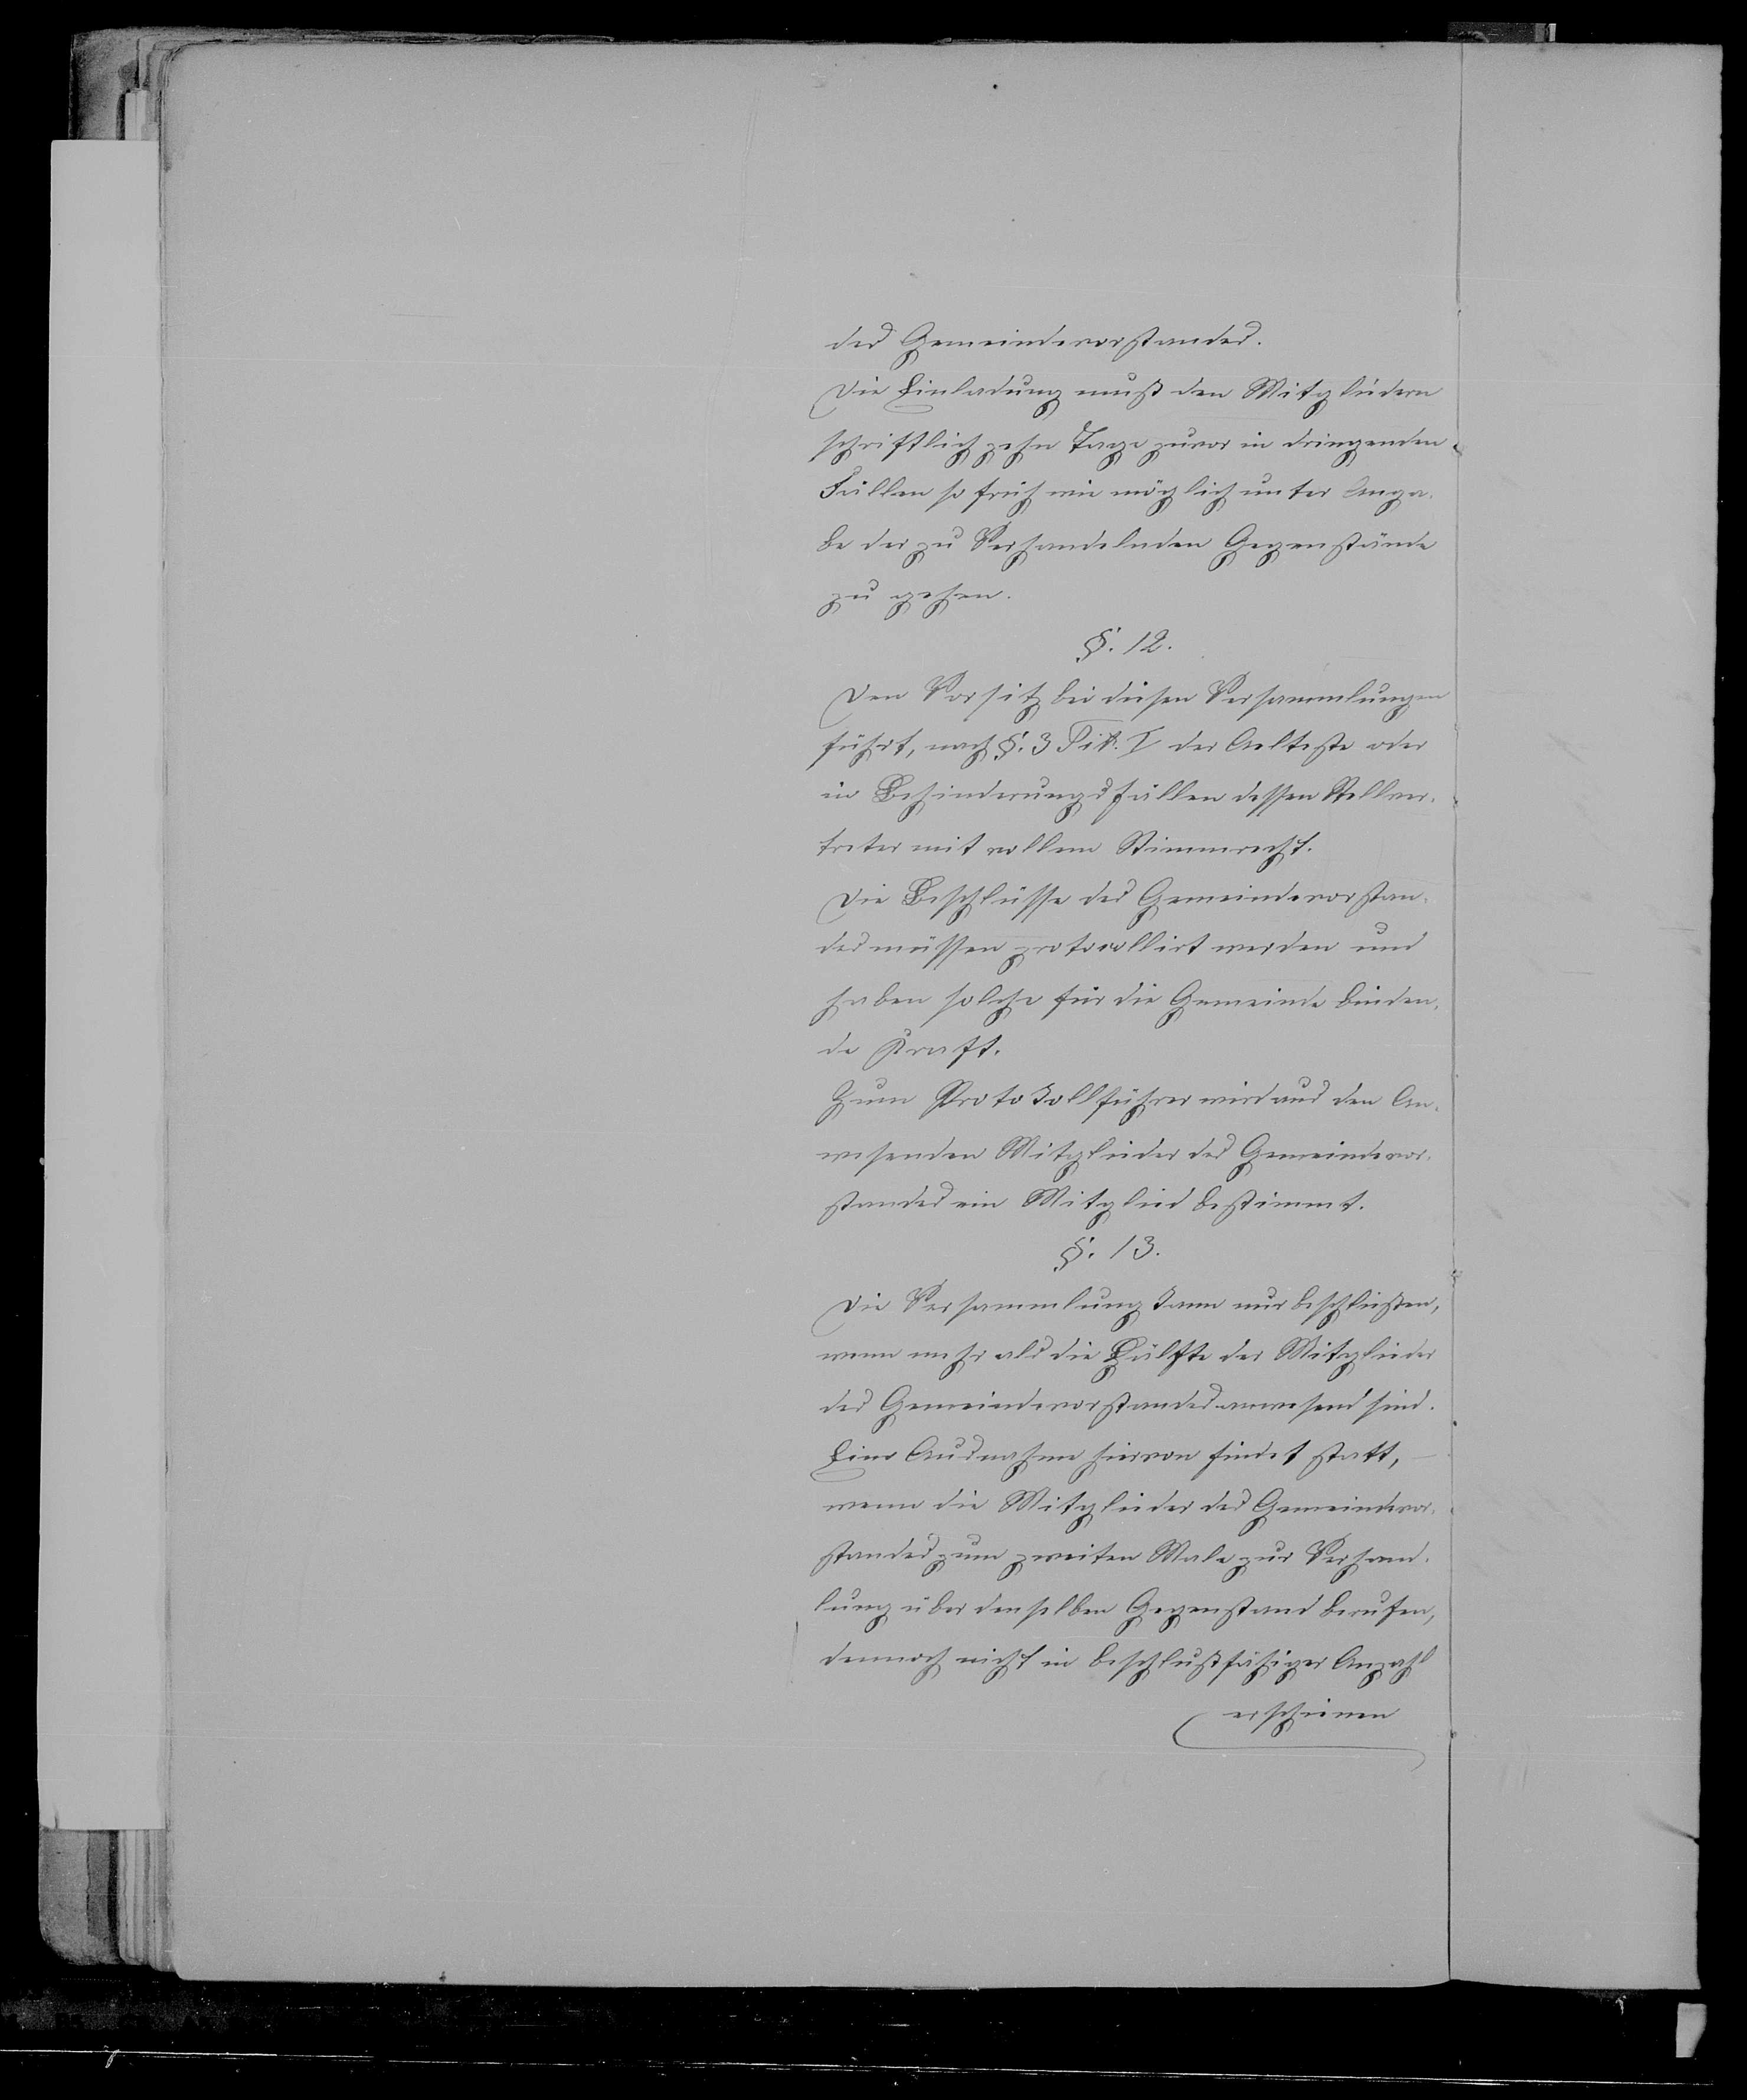 des Gemeindevorstandes.
Die Einladung muß den Mitgliedern
schriftlich zehn Tage zuvor in dringenden
Fällen so früh wie möglich unter Anga-
be der zu Verhandelnden Gegenstände
zu gehen.
§. 12.
Den Vorsitz bei diesen Versammlungen
führt, nach §. 3 Tit. I der Aelteste oder
in Behinderungsfällen dessen Stellver-
treter mit vollem Stimmrecht.
Die Beschlüsse des Gemeindevorstan-
des müssen protocollirt werden und
haben solche für die Gemeinde binden-
de Kraft.
Zum Protokollführer wird aus den An-
wesenden Mitglieder des Gemeindevor-
standes ein Mitglied bestimmt.
§. 13.
Die Versammlung kann nur beschließen,
wenn mehr als die Hälfte der Mitglieder
des Gemeindevorstandes anwesend sind.
Eine Ausnahme hiervon findet statt, —
wenn die Mitglieder des Gemeindevor-
standes zum zweiten Male zur Verhand-
lung über denselben Gegenstand berufen,
dennoch nicht in beschlußfähiger Anzahl
erschienen